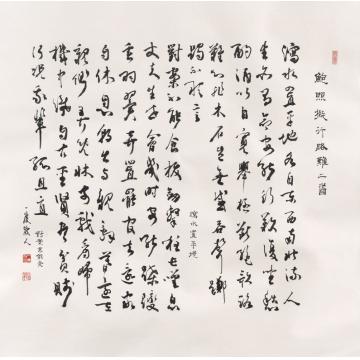 鮑照擬行路難二首
瀉水置平地各自東西南北流人
生亦有命安能行歎復坐愁
酌酒以自寬舉杯斷絕歌路
難心非木石豈無感吞聲躑
躅不敢言
瀉水置平地
對案不能食拔劍擊柱長歎息
丈夫生世會幾時安能蹀躞
垂羽翼棄置罷官去還家
自休息朝出與親辭暮還在
親側弄兒床前戲看婦
機中織自古聖賢盡貧賤
何況我輩孤且直
對案不能食